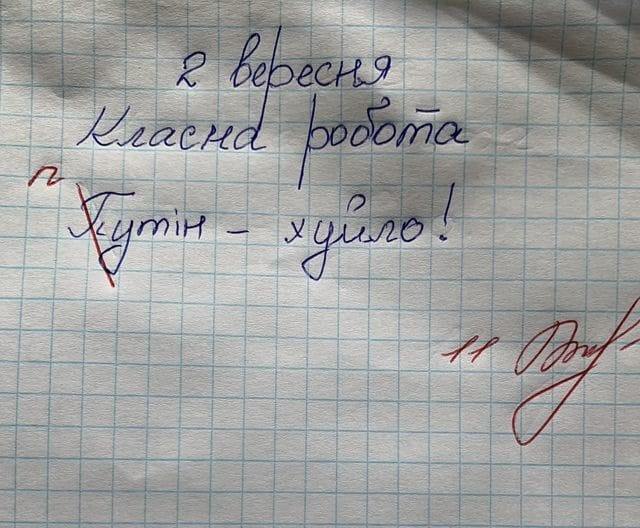 2 вересня
Класна робота
п
Путін – хуйло!
11